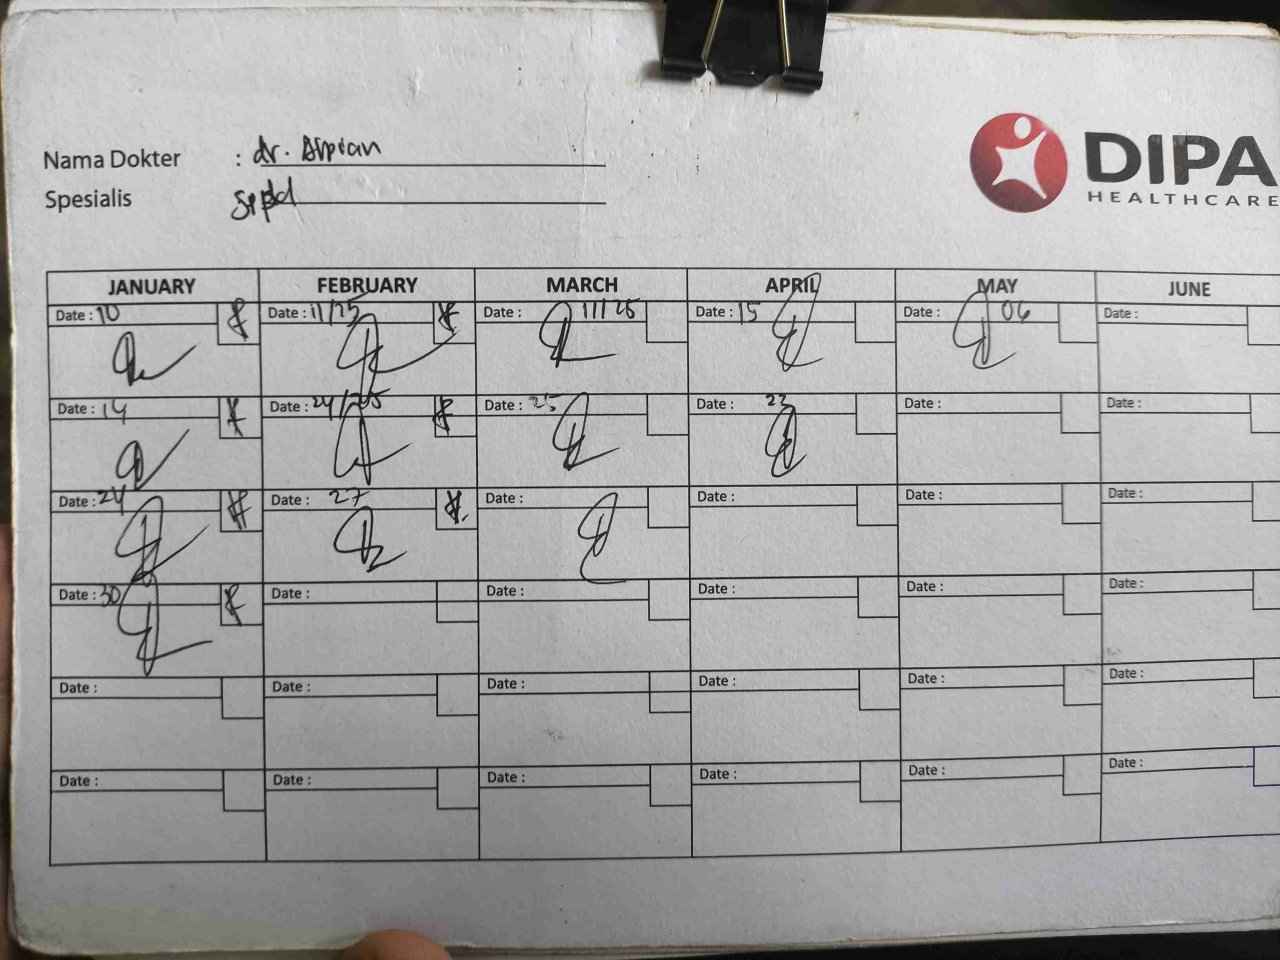 Nama Dokter : dr. Arpian
Spesialis sppd
DIPA
HEALTHCARE
JANUARY FEBRUARY MARCH APRIL MAY JUNE
Date : 10 Date : 11/25 Date : 11/25 Date : 15 Date : 06 Date :
Date : 14 Date : 24/225 Date : 25 Date : 23 Date : Date :
Date : 24 Date : 27 Date : Date : Date : Date :
Date : 30 Date : Date : Date : Date : Date :
Date : Date : Date : Date : Date : Date :
Date : Date : Date : Date : Date : Date :